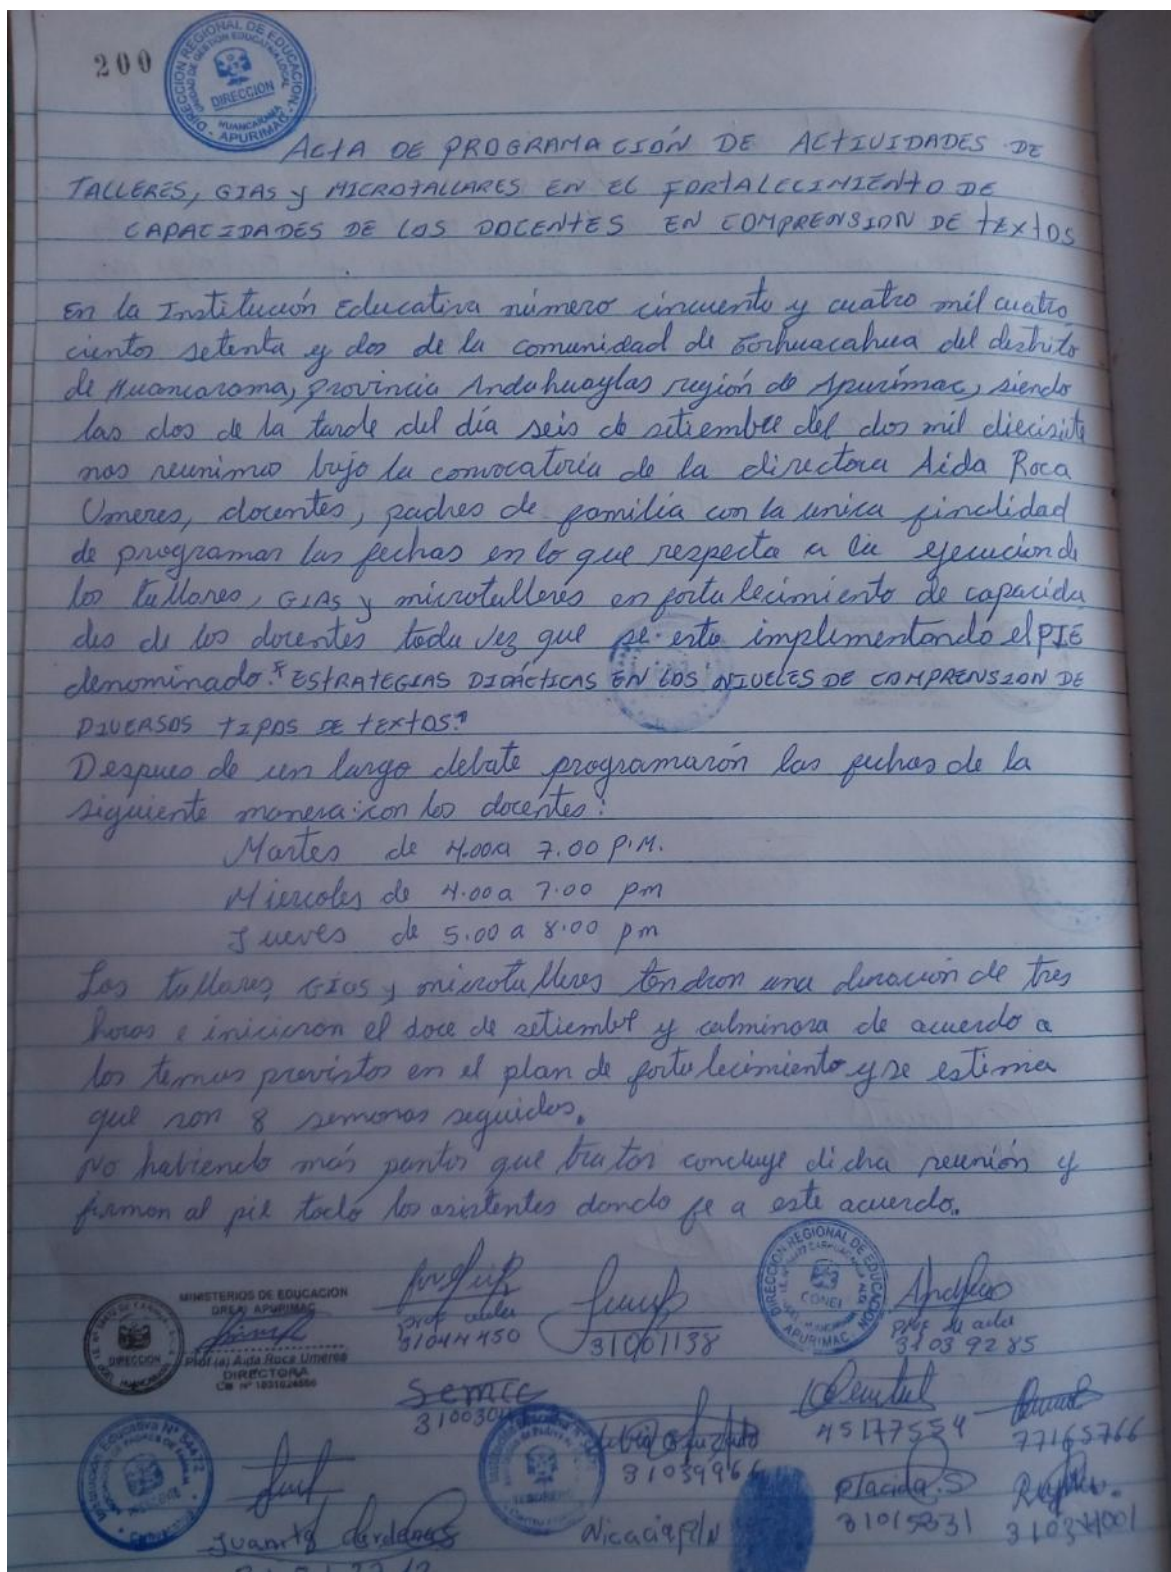 200
DIRECCION REGIONAL DE EDUCACION - APURIMAC
UNIDAD DE GESTION EDUCATIVA LOCAL
DIRECCION
HUANCARAMA
ACTA DE PROGRAMACIÓN DE ACTIVIDADES DE
TALLERES, GIAS y MICROTALLARES EN EL FORTALECIMIENTO DE
CAPACIDADES DE LOS DOCENTES EN COMPRENSION DE TEXTOS
En la Institución Educativa número cincuenta y cuatro mil cuatro
cientos setenta y dos de la comunidad de del distrito
de Huancarama, provincia Andahuaylas región de Apurímac, siendo
las dos de la tarde del día seis de setiembre del dos mil diecisiete
nos reunimos bajo la convocatoria de la directora Aida Roca
Umeres, docentes, padres de familia con la unica finalidad
de programar las fechas en lo que respecta a la ejecución de
los tallares, GIAS y microtalleres en fortalecimiento de capacida
des de los docentes toda vez que se esta implementando el PIE
denominado: "ESTRATEGIAS DIDÁCTICAS EN LOS NIVELES DE COMPRENSION DE
DIVERSOS TIPOS DE TEXTOS."
Despues de un largo debate programarón las fechas de la
siguiente manera: con los docentes:
Martes de 4.00 a 7.00 P.M.
Miercoles de 4.00 a 7.00 pm
Jueves de 5.00 a 8.00 pm
Los tallares, GIAS y microtalleres tendran una duración de tres
horas e iniciaran el doce de setiembre y culminara de acuerdo a
los temas previstos en el plan de fortalecimiento y se estima
que son 8 semanas seguidas.
No habiendo más puntos que tratar concluye dicha reunión y
firman al pie todo los asistentes dando fe a este acuerdo.
MINISTERIOS DE EDUCACION
DREA APURIMAC
Prof (a) Aida Roca Umeres
DIRECTORA
DIRECCION
prof aula
31044450
31001138
DIRECCION REGIONAL DE EDUCACION
CONEI
APURIMAC
prof de aula
31039285
45177554
77165766
Institución Educativa N° 54472
Juanita Cardenas
Placida.S
31015331
31037001